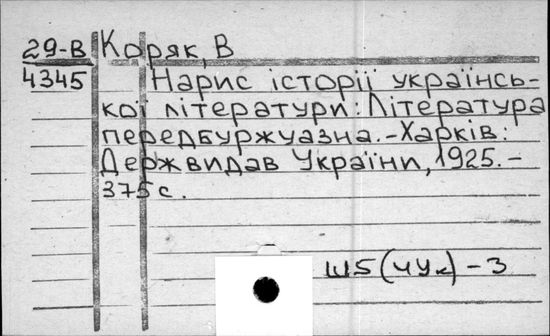 29-В Коряк, В
4345 Нарис історії українсь-
кої літератури: Література
передбуржуазна.-Харків:
Держвидав України, 1925.-
375с.
Ш5(4Ук)-3